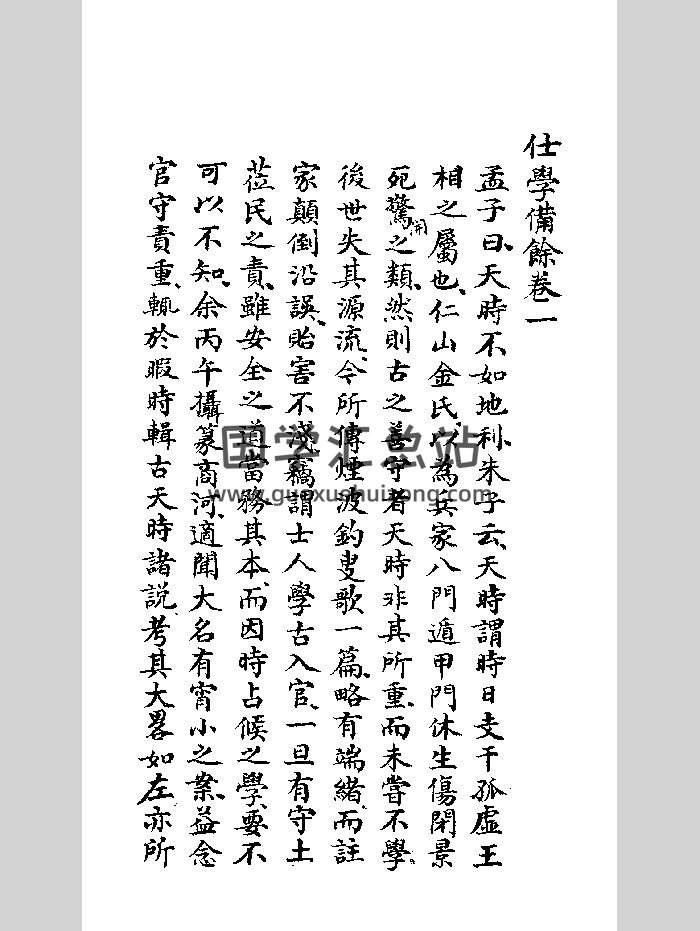 仕學備餘卷一
孟子曰、天時不如地利、朱子云、天時謂時日支干孤虛王
相之屬也、仁山金氏、以為兵家八門遁甲門休生傷閉景
死驚開之類、然則古之善守者天時非其所重、而未嘗不學、
後世失其源流、今所傳煙波釣叟歌一篇、略有端緒、而註
家顛倒沿誤、貽害不淺、竊謂士人學古入官、一旦有守土
蒞民之責、雖安全之道當務其本、而因時占候之學、要不
可以不知、余丙午攝篆商河、適聞大名有宵小之案、益念
官守責重、輒於暇時輯古天時諸説、考其大畧如左亦所
国学汇总站
www.guoxushuizong.com